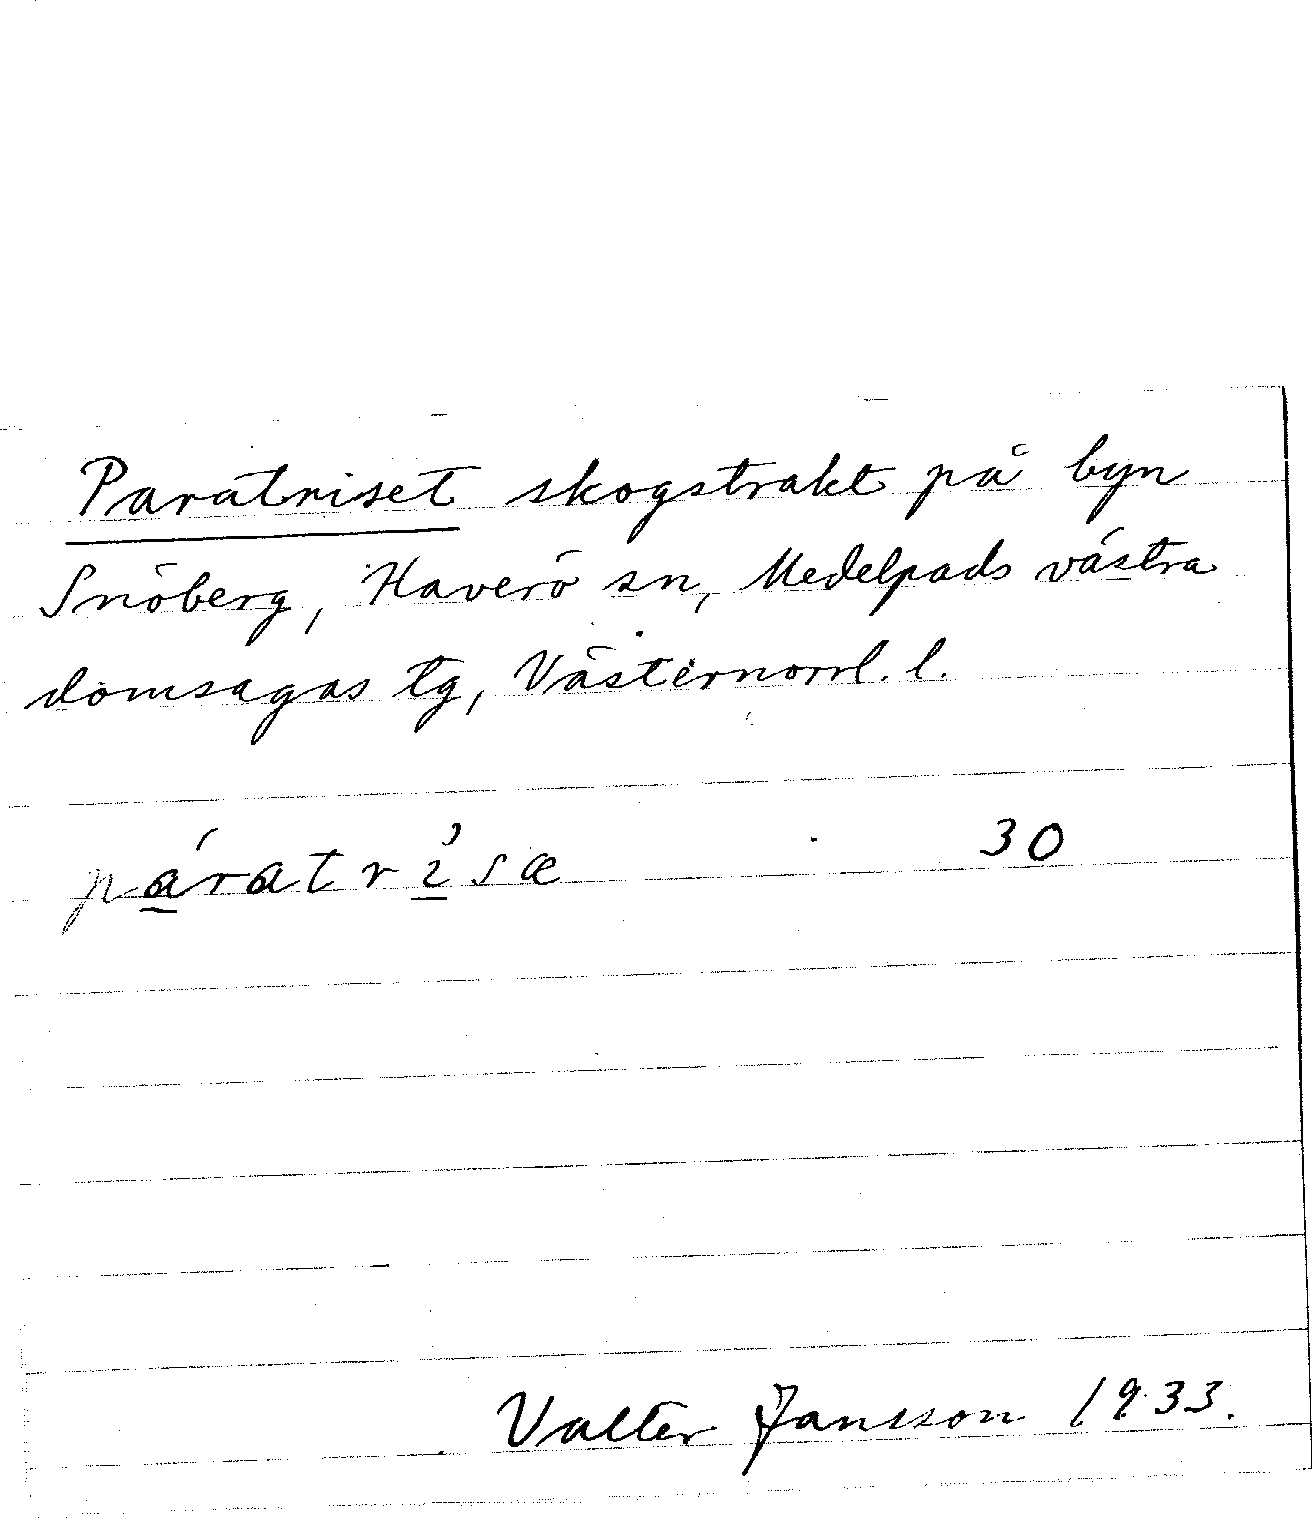 Paratriset skogstrakt på byn
Snöberg, Haverö sn, Medelpads västra
domsagas tg, Västernorrl. l.
páratrı̓sæ 30
Valter Jansson 1933.